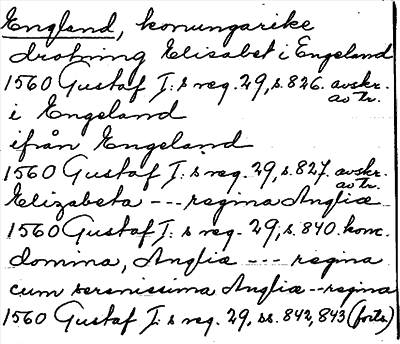 England, konungarike
drotning Elisabet i Engeland
1560 Gustaf I:s reg. 29, s. 826. avskr. av tr.
i Engeland
ifrån Engeland
1560 Gustaf I:s reg. 29, s. 827. avskr. av tr.
Elizabeta --- regina Angliæ
1560 Gustaf I:s reg. 29, s. 840. konc.
domina, Angliæ --- regina
cum serenissima Angliæ -- regina
1560 Gustaf I:s reg. 29, ss. 842, 843 (forts.)